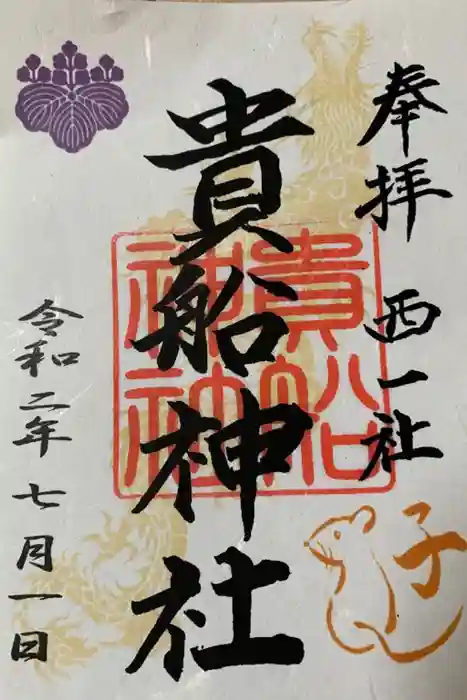 奉拝 西一社
貴船神社
貴船
神社
令和二年七月一日
子